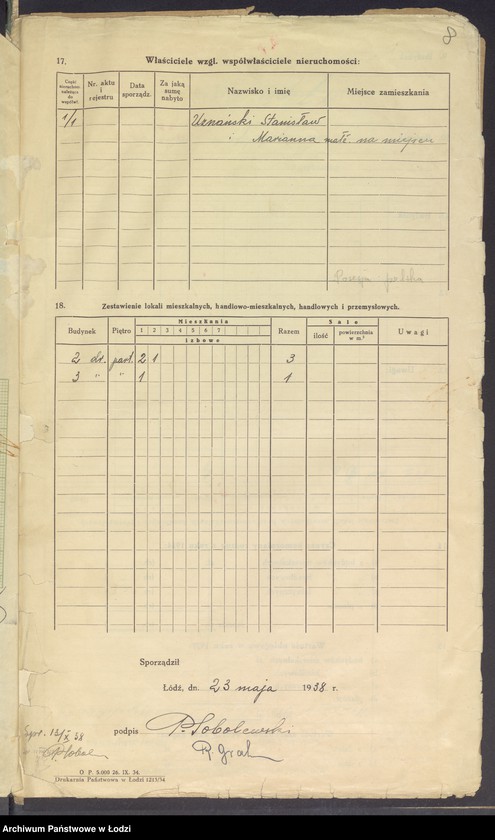 8
17. Właściciele wzgl. współwłaściciele nieruchomości:
Część nieruchom. należąca do współwł.
Nr. aktu i rejestru
Data sporządz.
Za jaką sumę nabyto
Nazwisko i imię
Miejsce zamieszkania
1/1 Uznański Stanisław
i Marianna małż. na miejscu
18. Zestawienie lokali mieszkalnych, handlowo-mieszkalnych, handlowych i przemysłowych.
Budynek Piętro Mieszkania Razem Sale Uwagi
1 2 3 4 5 6 7
izbowe
ilość powierzchnia w m²
2 dr. part. 2 1 3
3 " " 1 1
Sporządził
Łódź, dn. 23 maja 1938 r.
podpis P. Sobolewski
O P. 5.000 26. IX. 34.
Drukarnia Państwowa w Łodzi 1213/34
Archiwum Państwowe w Łodzi